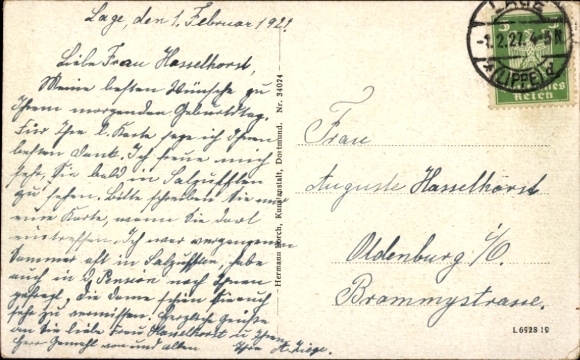 Lage, den 1. Februar 192
Liebe Frau Hasselhorst,
Meine besten Wünsche zu
Ihrem morgenden Geburtstag.
Für Ihre l. Karte sage ich Ihnen
besten Dank. Ich freue mich
sehr, Sie bald in Salzuflen
zu sehen. Bitte schreiben Sie mir
eine Karte, wenn Sie dort
eintreffen. Ich war vergangenen
Sommer oft in Salzuflen habe
auch in d. Pension nach Ihnen
gefragt, die Dame schien Sie auch
sehr zu vermissen. Herzliche Grüße
an Sie liebe Frau Hasselhorst u. Ihren
Herr Gemahl von uns allen Ihre
Hermann Lorch, Kunstanstalt, Dortmund. Nr. 24024
LAGE
-1.2.27. 4-5 N.
(LIPPE) d
5
Deutsches
Reich
Frau
Auguste Hasselhorst
Oldenburg i/O.
Brommystrasse.
L 6928 19